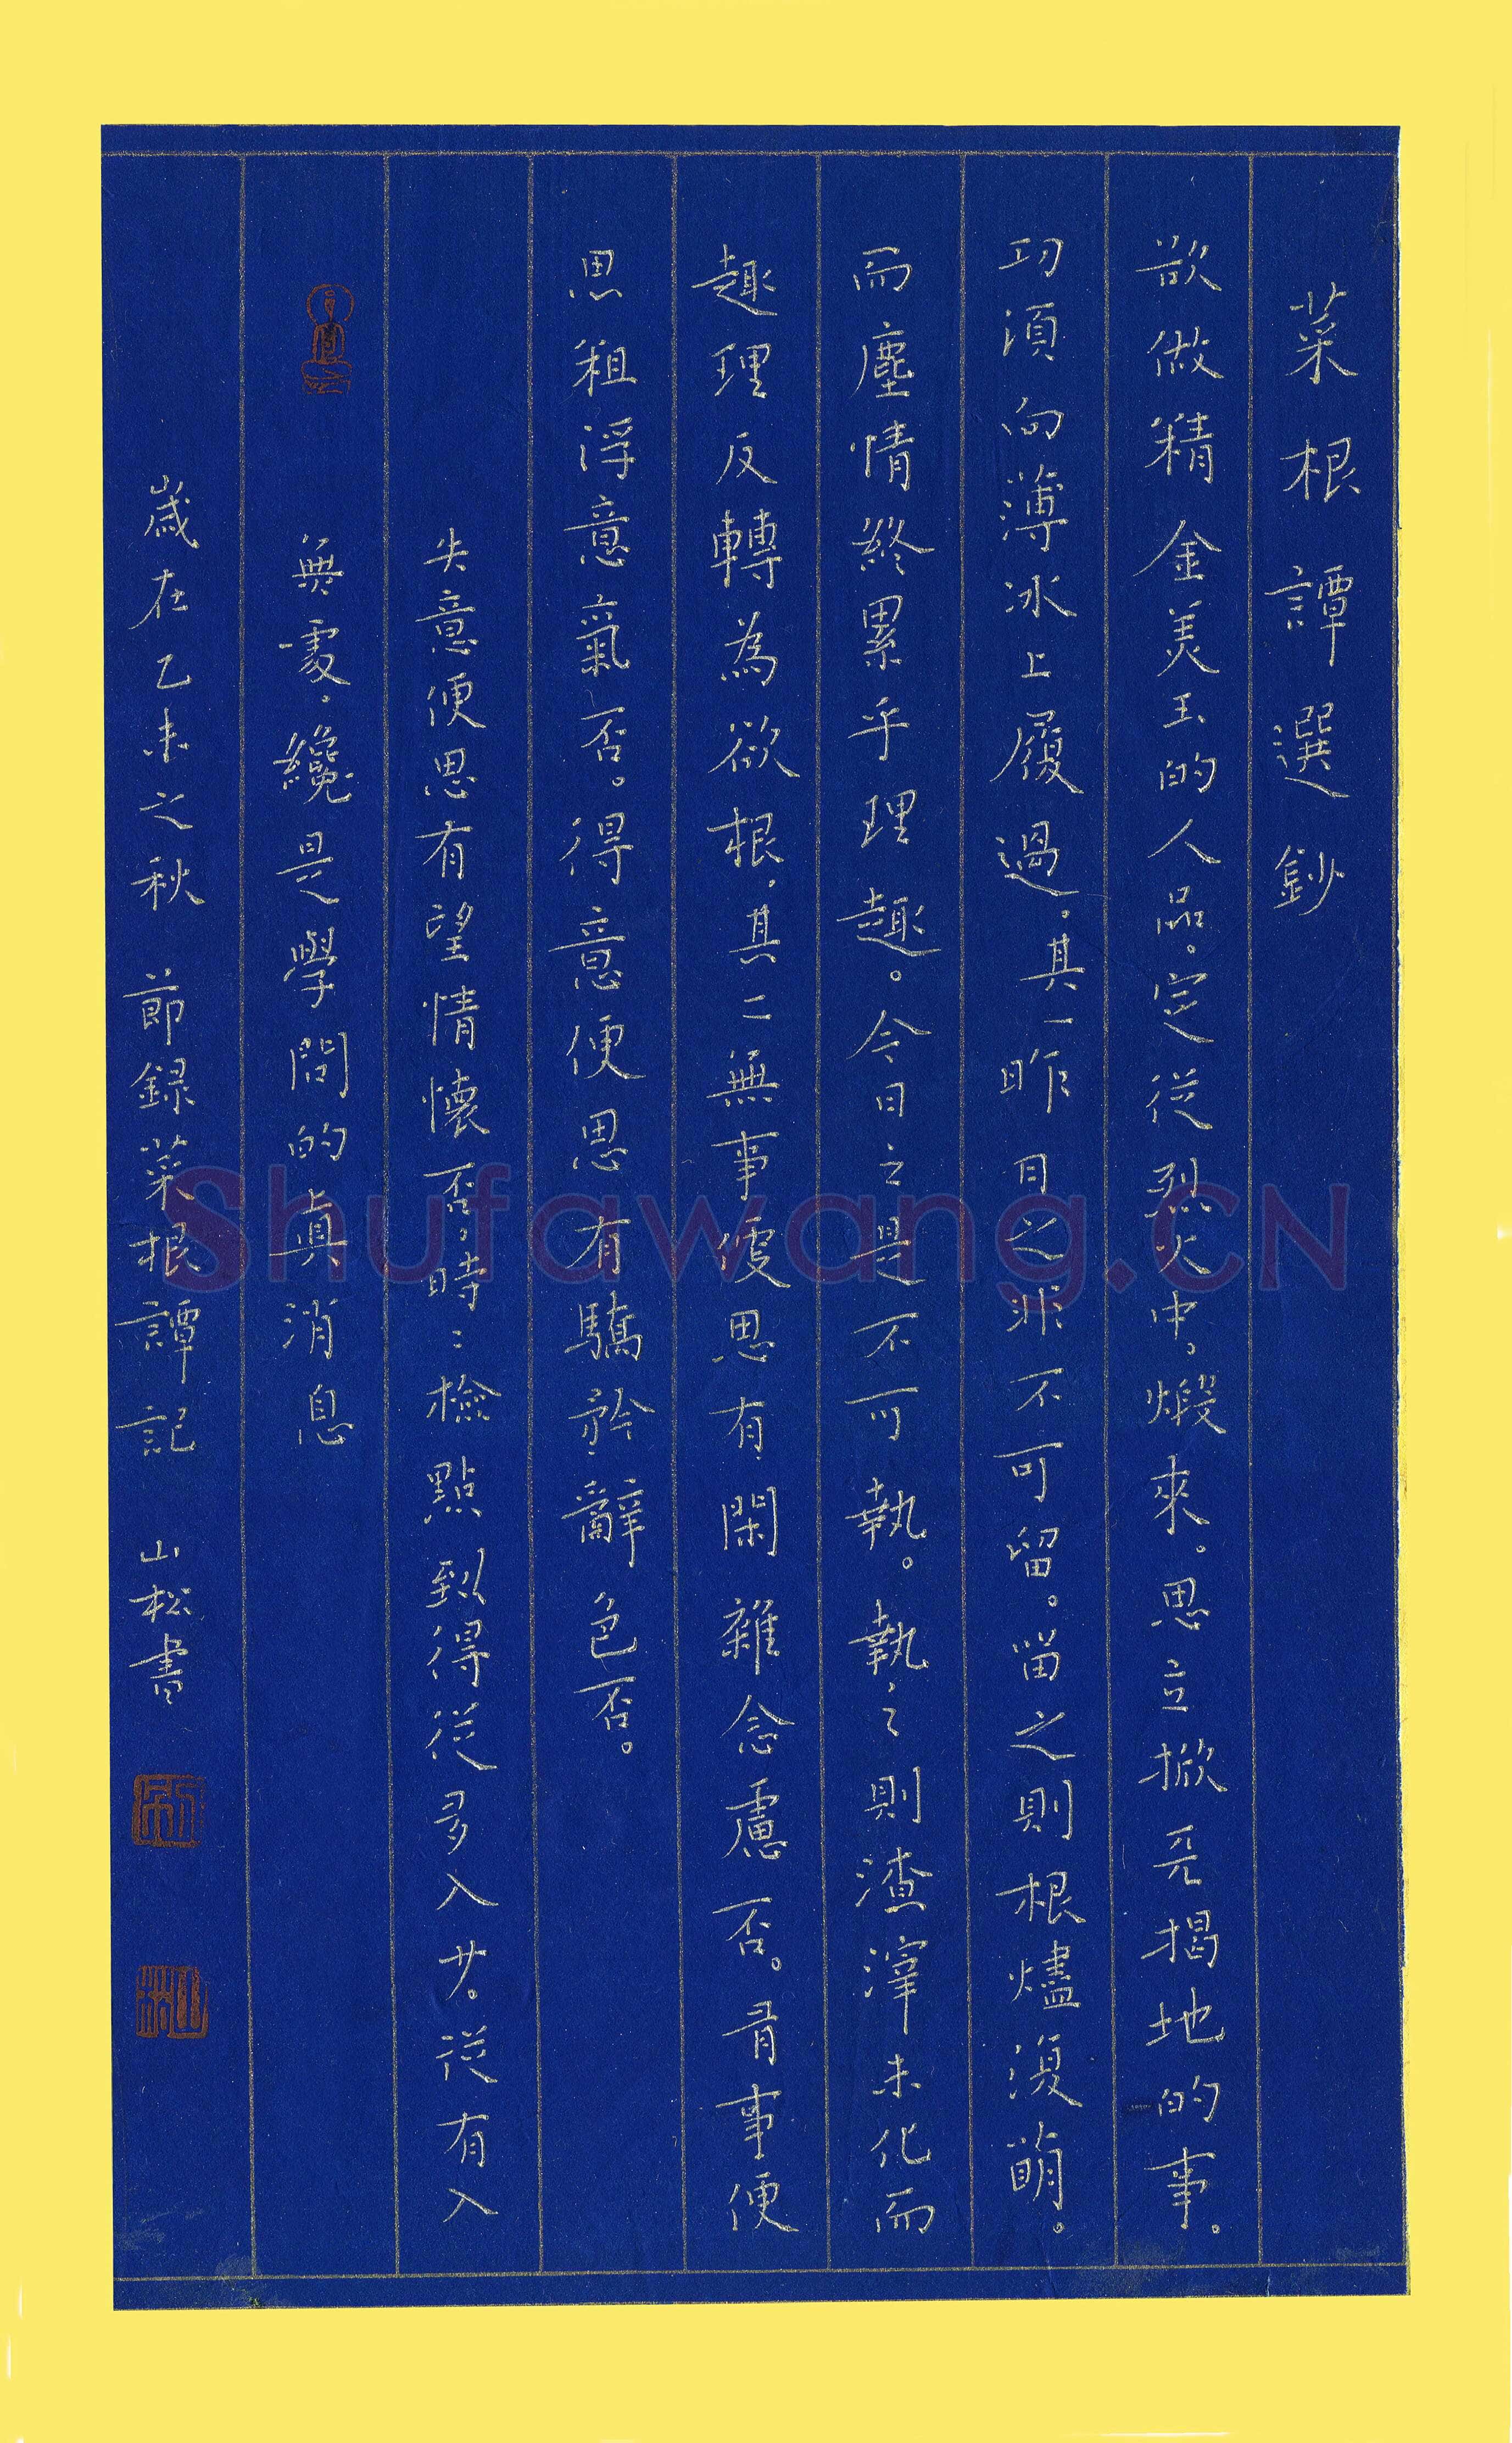 菜根譚選鈔
欲做精金美玉的人品。定從烈火中。煅來。思立掀天揭地的事。
功須向薄冰上履過。其一昨日之非不可留。畱之則根燼復萌。
而塵情終累乎理趣。今日之是不可執。執之則渣滓未化而
趣理反轉為欲根。其二無事便思有閑雜念慮否。有事便
思粗浮意氣否。得意便思有驕矜辭色否。
失意便思有望情懷否。時:檢點到得從多入少。從有入
無處。纔是學問的真消息
歲在乙未之秋 節録菜根譚記 山松書
Shufawang.CN